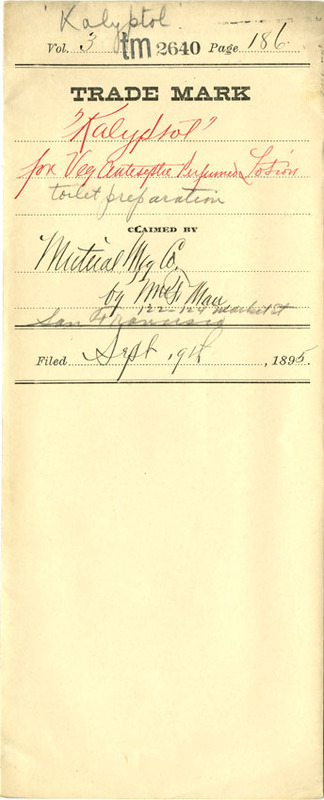 "Kalyptol"
Vol. 3 tm 2640 Page 186
TRADE MARK
"Kalyptol"
for Veg Antiseptic Perfumed Lotion
toilet preparation
CLAIMED BY
Mutual Mfg Co.
by
122-124 Market St
San Francisco
Filed Sept. 9th, 1895.